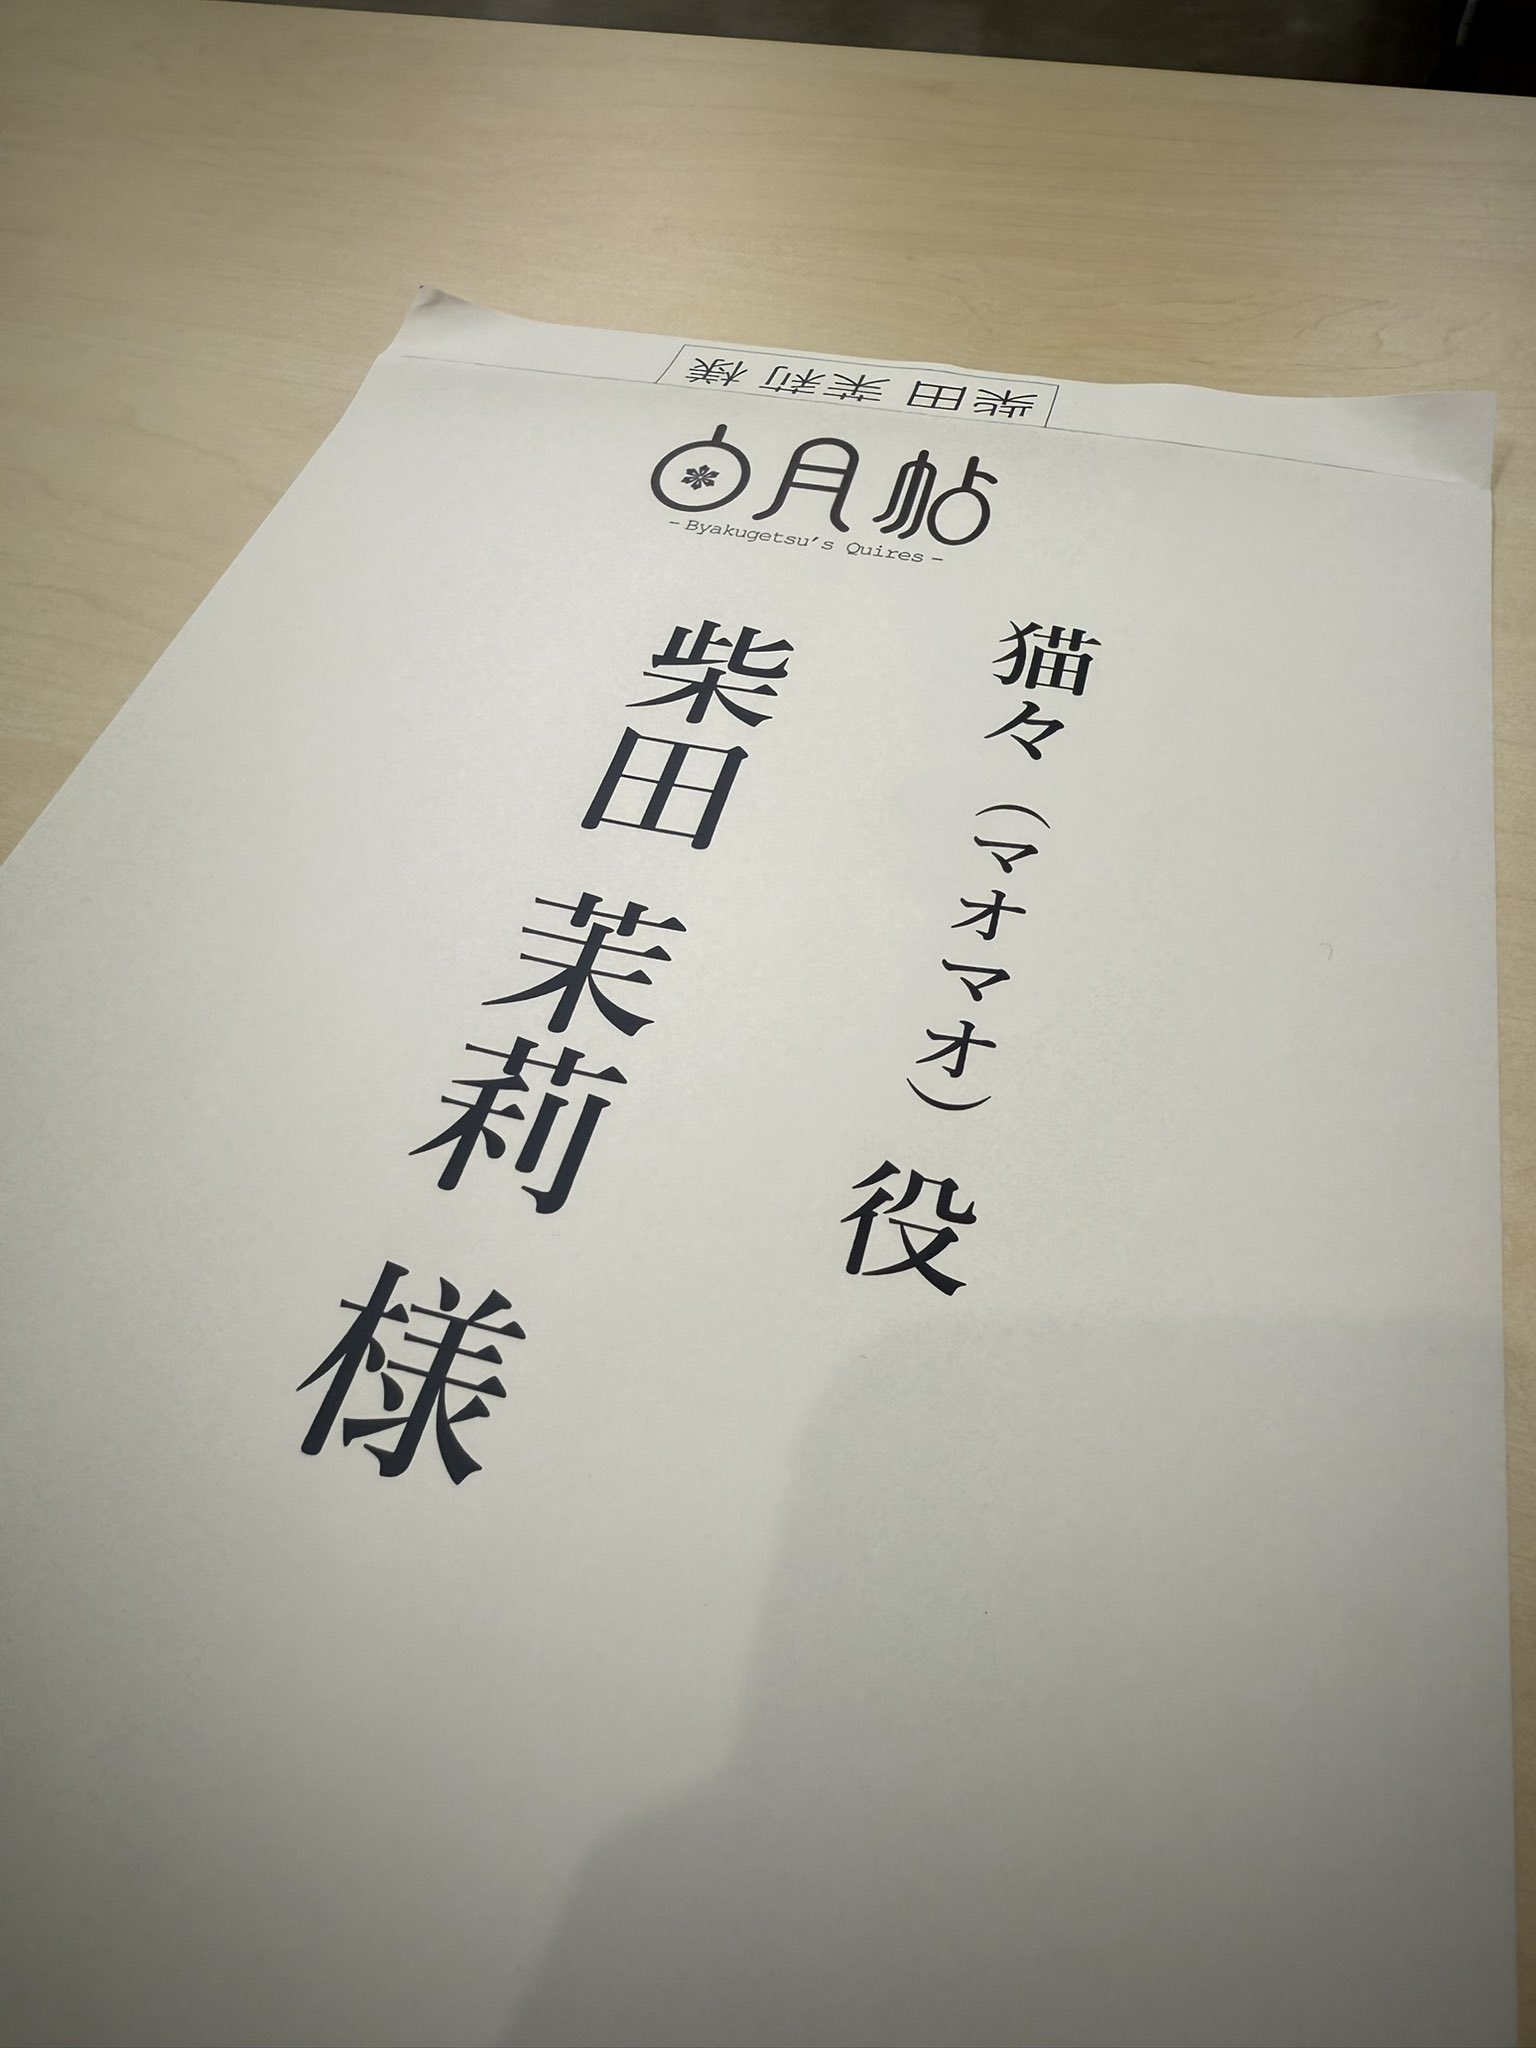 柴田 茉莉 様
白月帖
- Byakugetsu's Quires -
猫々（マオマオ）役
柴田 茉莉 様